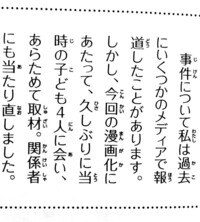 事件について私は過去
にいくつかのメディアで報
道したことがあります。
しかし、今回の漫画化に
あたって、久しぶりに当
時の子ども4人に会い、
あらためて取材。関係者
にも当たり直しました。